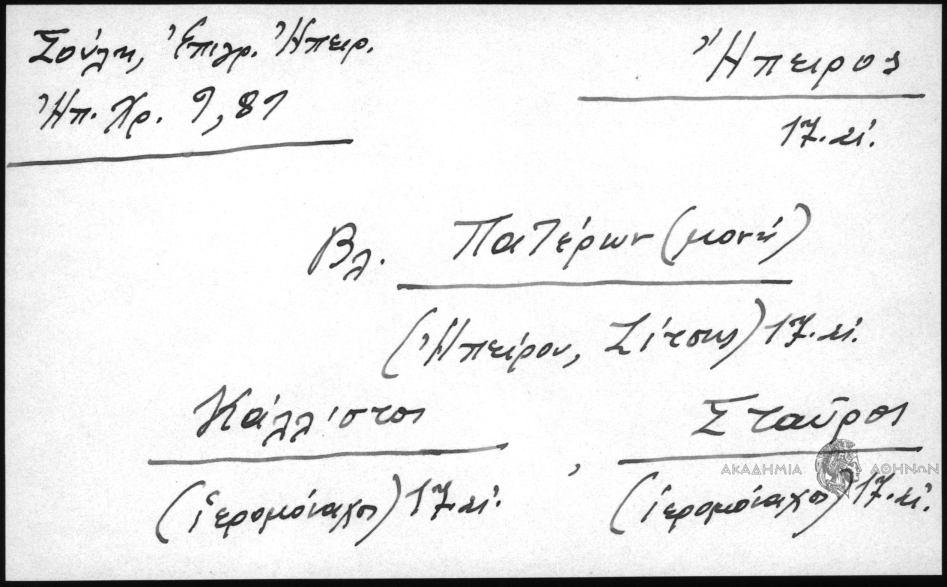 Σούλη, Ἐπιγρ. Ἠπειρ.
Ἠπ. Χρ. 9, 81
Ἤπειρος
17. αἰ.
Βλ. Πατέρων (μονή)
(Ἠπείρου, Ζίτσης) 17. αἰ.
Κάλλιστος
(ἱερομόναχος) 17. αἰ. ,
Σταῦρος
(ἱερομόναχος) 17. αἰ.
ΑΚΑΔΗΜΙΑ ΑΘΗΝΩΝ